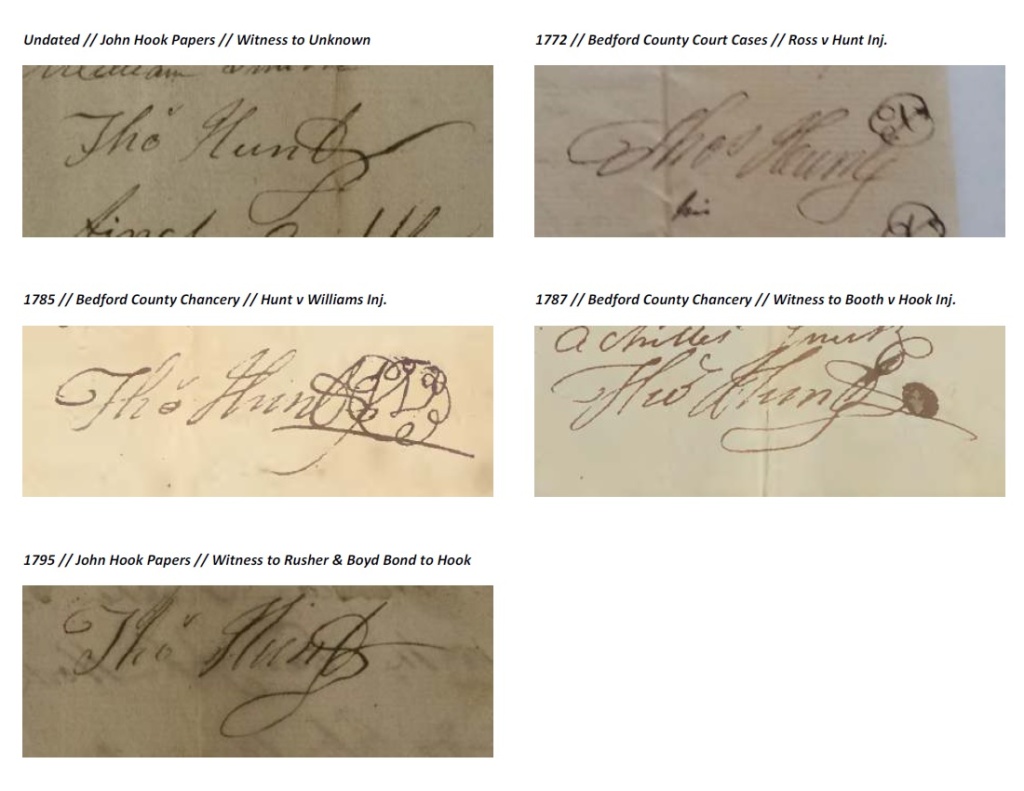 Undated // John Hook Papers // Witness to Unknown
1772 // Bedford County Court Cases // Ross v Hunt Inj.
William
Thos Hunt
Thos Hunt
his
1785 // Bedford County Chancery // Hunt v Williams Inj.
1787 // Bedford County Chancery // Witness to Booth v Hook Inj.
Achilles
Thos Hunt
Thos Hunt
1795 // John Hook Papers // Witness to Rusher & Boyd Bond to Hook
Thos Hunt